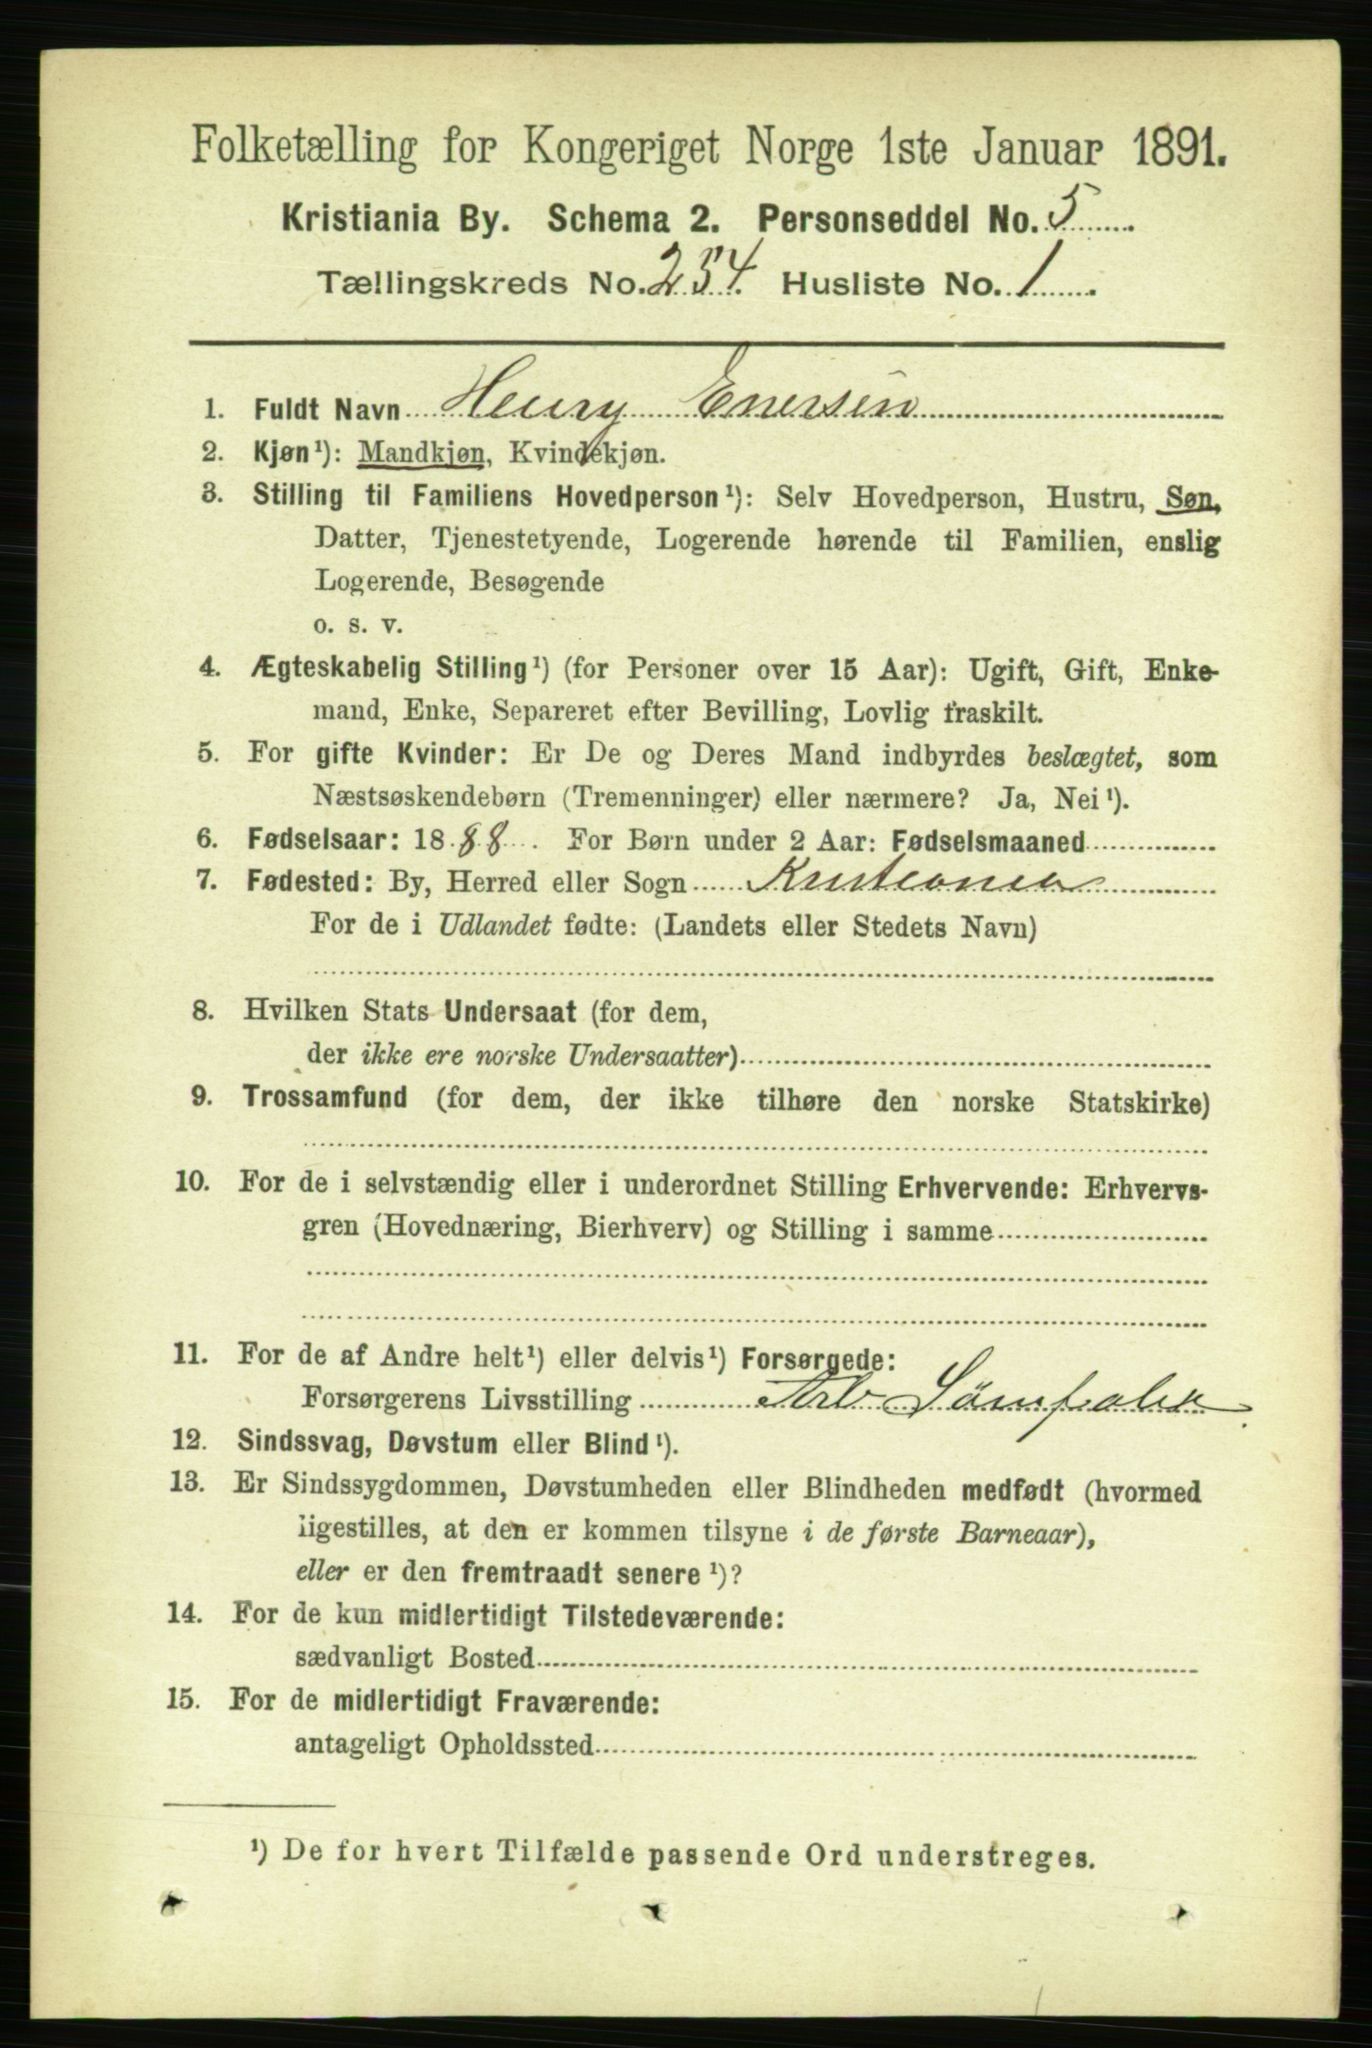 Folketælling for Kongeriget Norge 1ste Januar 1891.
Kristiania By. Schema 2. Personseddel No. 5
Tællingskreds No. 254. Husliste No. 1
1. Fuldt Navn Henry Enersen
2. Kjøn¹): Mandkjøn, Kvindekjøn.
3. Stilling til Familiens Hovedperson¹): Selv Hovedperson, Hustru, Søn,
Datter, Tjenestetyende, Logerende hørende til Familien, enslig
Logerende, Besøgende
o. s. v.
4. Ægteskabelig Stilling¹) (for Personer over 15 Aar): Ugift, Gift, Enke-
mand, Enke, Separeret efter Bevilling, Lovlig fraskilt.
5. For gifte Kvinder: Er De og Deres Mand indbyrdes beslægtet, som
Næstsøskendebørn (Tremenninger) eller nærmere? Ja, Nei¹).
6. Fødselsaar: 1888. For Børn under 2 Aar: Fødselsmaaned
7. Fødested: By, Herred eller Sogn Kristiania
For de i Udlandet fødte: (Landets eller Stedets Navn)
8. Hvilken Stats Undersaat (for dem,
der ikke ere norske Undersaatter)
9. Trossamfund (for dem, der ikke tilhøre den norske Statskirke)
10. For de i selvstændig eller i underordnet Stilling Erhvervende: Erhvervs-
gren (Hovednæring, Bierhverv) og Stilling i samme
11. For de af Andre helt¹) eller delvis¹) Forsørgede:
Forsørgerens Livsstilling Arb
12. Sindssvag, Døvstum eller Blind¹).
13. Er Sindssygdommen, Døvstumheden eller Blindheden medfødt (hvormed
ligestilles, at den er kommen tilsyne i de første Barneaar),
eller er den fremtraadt senere¹)?
14. For de kun midlertidigt Tilstedeværende:
sædvanligt Bosted
15. For de midlertidigt Fraværende:
antageligt Opholdssted
¹) De for hvert Tilfælde passende Ord understreges.